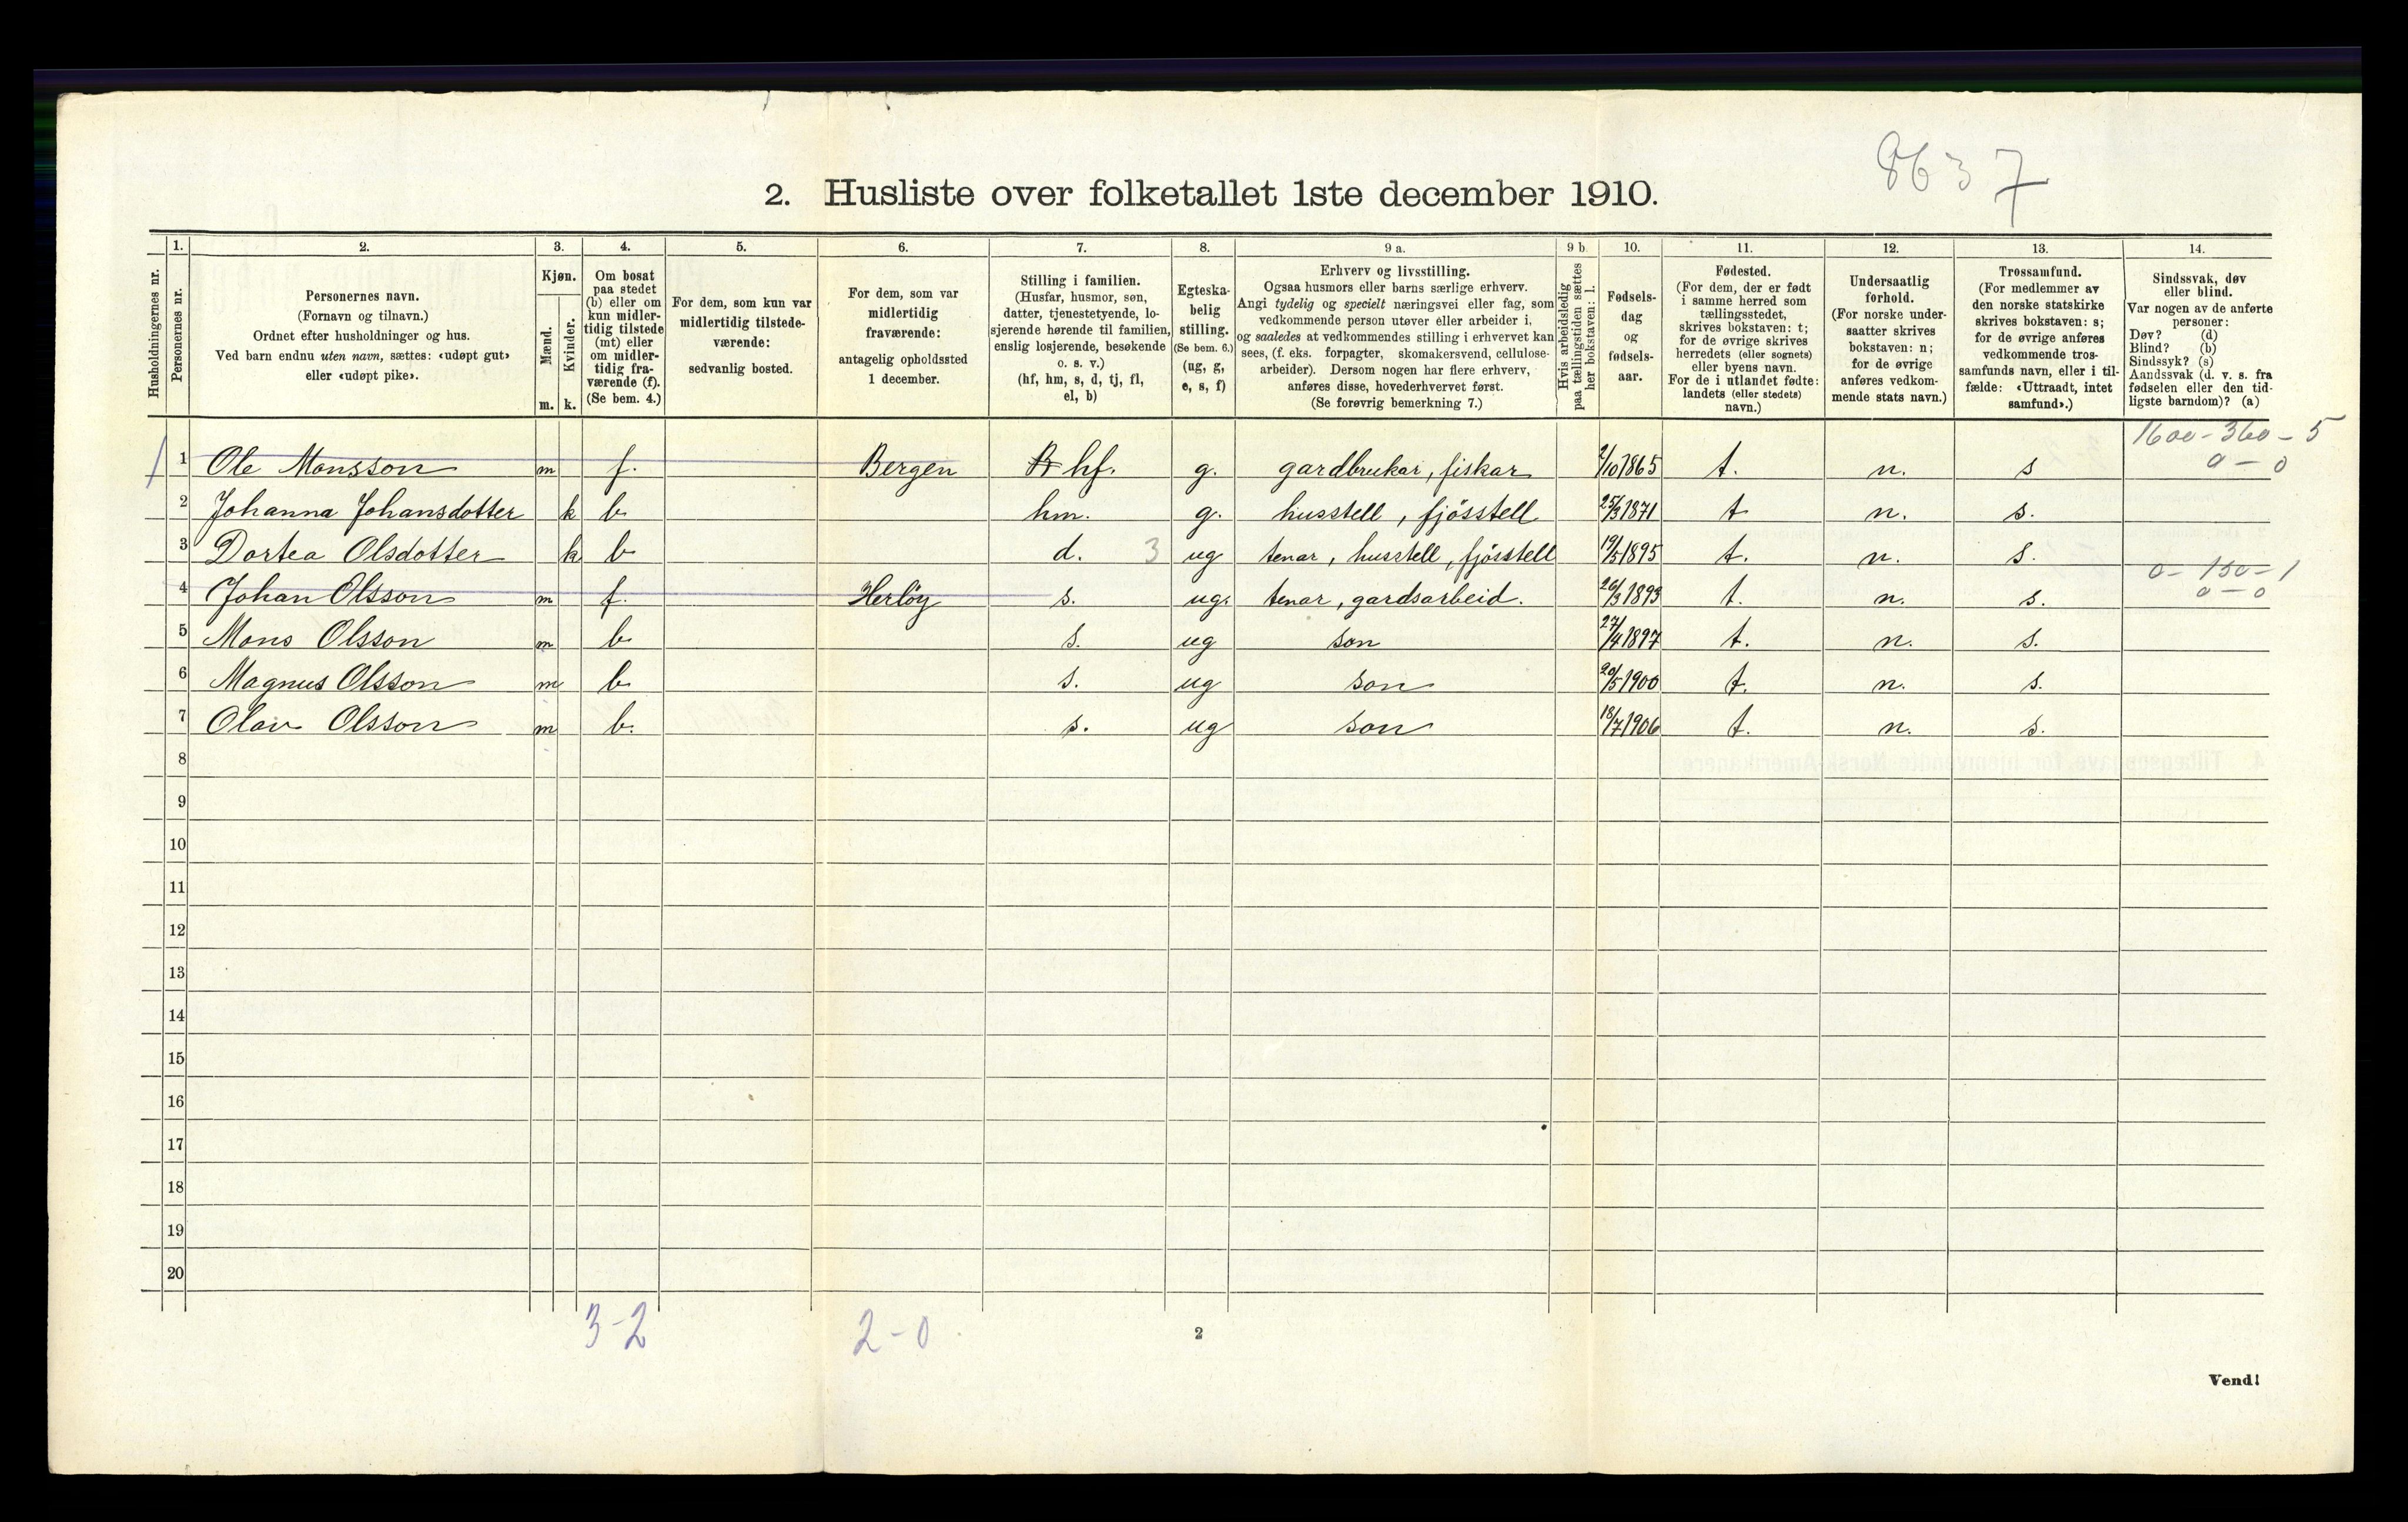 8637
2. Husliste over folketallet 1ste december 1910.
Husholdningernes nr.
1. Personernes nr.
2. Personernes navn.
(Fornavn og tilnavn.)
Ordnet efter husholdninger og hus.
Ved barn endnu uten navn, sættes: «udøpt gut»
eller «udøpt pike».
3. Kjøn.
Mænd. m.
Kvinder. k.
4. Om bosat
paa stedet
(b) eller om
kun midler-
tidig tilstede
(mt) eller
om midler-
tidig fra-
værende (f).
(Se bem. 4.)
5. For dem, som kun var
midlertidig tilstede-
værende:
sedvanlig bosted.
6. For dem, som var
midlertidig
fraværende:
antagelig opholdssted
1 december.
7. Stilling i familien.
(Husfar, husmor, søn,
datter, tjenestetyende, lo-
sjerende hørende til familien,
enslig losjerende, besøkende
o. s. v.)
(hf, hm, s, d, tj, fl,
el, b)
8. Egteska-
belig
stilling.
(Se bem. 6.)
(ug, g,
e, s, f)
9 a. Erhverv og livsstilling.
Ogsaa husmors eller barns særlige erhverv.
Angi tydelig og specielt næringsvei eller fag, som
vedkommende person utøver eller arbeider i,
og saaledes at vedkommendes stilling i erhvervet kan
sees, (f. eks. forpagter, skomakersvend, cellulose-
arbeider). Dersom nogen har flere erhverv,
anføres disse, hovederhvervet først.
(Se forøvrig bemerkning 7.)
9 b. Hvis arbeidsledig
paa tællingstiden sættes
her bokstaven: l.
10. Fødsels-
dag
og
fødsels-
aar.
11. Fødested.
(For dem, der er født
i samme herred som
tællingsstedet,
skrives bokstaven: t;
for de øvrige skrives
herredets (eller sognets)
eller byens navn.
For de i utlandet fødte:
landets (eller stedets)
navn.)
12. Undersaatlig
forhold.
(For norske under-
saatter skrives
bokstaven: n;
for de øvrige
anføres vedkom-
mende stats navn.)
13. Trossamfund.
(For medlemmer av
den norske statskirke
skrives bokstaven: s;
for de øvrige anføres
vedkommende tros-
samfunds navn, eller i til-
fælde: «Uttraadt, intet
samfund».)
14. Sindssvak, døv
eller blind.
Var nogen av de anførte
personer:
Døv? (d)
Blind? (b)
Sindssyk? (s)
Aandssvak (d. v. s. fra
fødselen eller den tid-
ligste barndom)? (a)
1600 - 360 - 5
0 - 0
1 Ole Monsson m f. Bergen hf. g. gardbrukar, fiskar 2/10 1865 t. n. s
2 Johanna Johansdotter k b. hm. g. husstell, fjösstell 25/3 1871 t n. s.
3 Dortea Olsdotter k b d. 3 ug tenar, husstell, fjösstell 19/5 1895 t. n. s.
0 - 150 - 1
0 - 0
4 Johan Olsson m f. Herlöy s. ug. tenar, gardsarbeid. 26/3 1893 t. n. s.
5 Mons Olsson m b. s. ug son 27/4 1897 t. n. s.
6 Magnus Olsson m b. s. ug son 20/5 1900 t. n. s.
7 Olav Olsson m b. s. ug son 18/7 1906 t. n. s.
8
9
10
11
12
13
14
15
16
17
18
19
20
3-2 2-0
2
Vend!